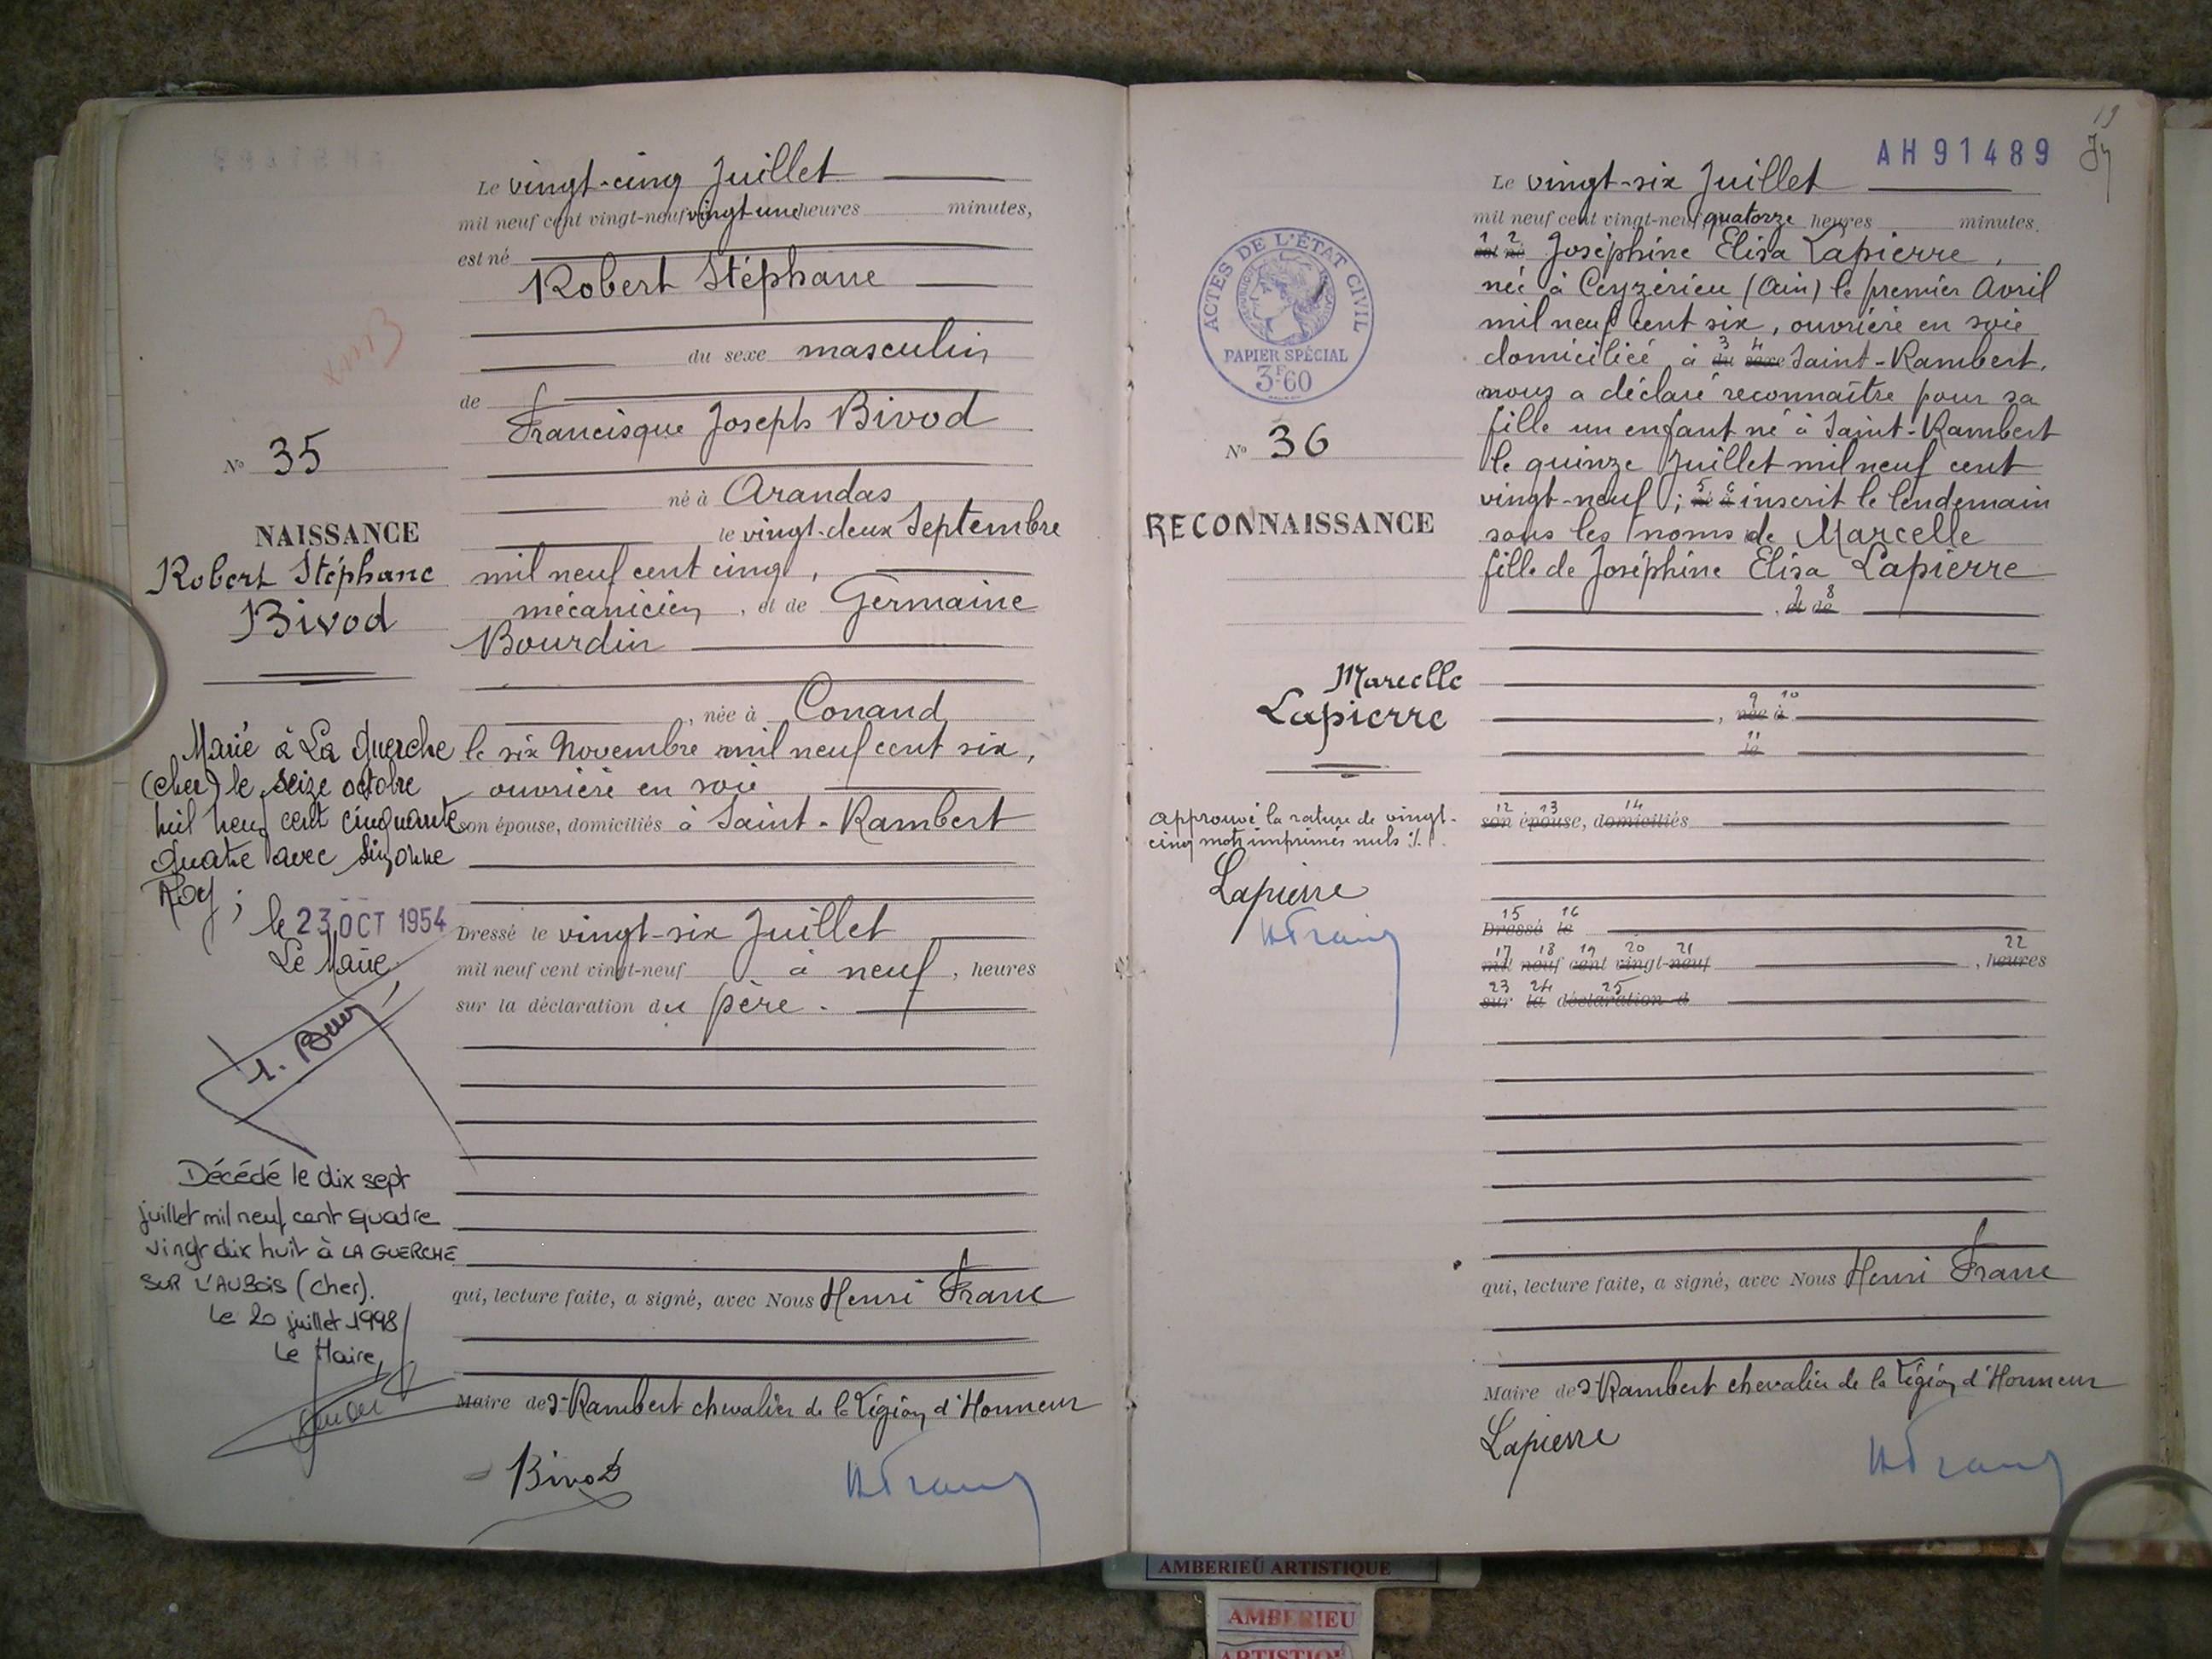 Le vingt-cinq Juillet
mil neuf cent vingt-neuf vingt une heures minutes,
est né
Robert Stéphane
du sexe masculin
de
Francisque Joseph Bivod
né à Arandas
le vingt-deux Septembre
mil neuf cent cinq,
mécanicien, et de Germaine
Bourdin
, née à Conand
le six Novembre mil neuf cent six,
ouvrière en soie
son épouse, domiciliés à Saint-Rambert
Dressé le vingt-six Juillet
mil neuf cent vingt-neuf à neuf, heures
sur la déclaration du père.
qui, lecture faite, a signé, avec Nous Henri Franc
Maire de St-Rambert chevalier de la Légion d'Honneur
Bivod
HFranc
N° 35
NAISSANCE
Robert Stéphane
Bivod
Marié à La Guerche
(Cher) le seize octobre
mil neuf cent cinquante
quatre avec Suzanne
Roy ;
le 23 OCT 1954
Le Maire
Décédé le dix sept
juillet mil neuf cent quatre
vingt dix huit à LA GUERCHE
SUR L'AUBOIS (Cher).
Le 20 juillet 1998
Le Maire,
19
AH91489
ACTES DE L'ÉTAT CIVIL
PAPIER SPÉCIAL
3F60
N° 36
RECONNAISSANCE
Marcelle
Lapierre
approuvé la rature de vingt-
cinq mots imprimés nuls ./.
Lapierre
HFranc
Le vingt-six Juillet
mil neuf cent vingt-neuf quatorze heures minutes.
1 2
est né Joséphine Elisa Lapierre,
née à Ceyzérieu (Ain) le premier Avril
mil neuf cent six, ouvrière en soie
3 4
domiciliée à du sexe Saint-Rambert,
nous a déclaré reconnaître pour sa
fille un enfant né à Saint-Rambert
le quinze Juillet mil neuf cent
5 6
vingt-neuf ; né à inscrit le lendemain
sous les noms de Marcelle
fille de Joséphine Elisa Lapierre
7 8
, et de
9 10
, née à
11
le
12 13 14
son épouse, domiciliés
15 16
Dressé le
17 18 19 20 21 22
mil neuf cent vingt-neuf , heures
23 24 25
sur la déclaration d
qui, lecture faite, a signé, avec Nous Henri Franc
Maire de St-Rambert chevalier de la Légion d'Honneur
Lapierre
HFranc
AMBERIEU ARTISTIQUE
AMBERIEU